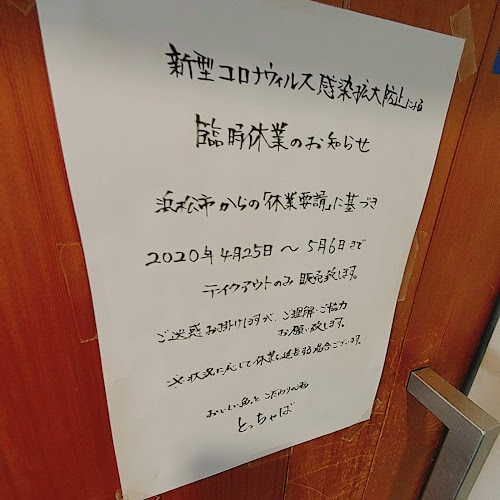 新型コロナウィルス感染拡大防止による
臨時休業のお知らせ
浜松市からの「休業要請」に基づき
2020年4月25日～5月6日まで
テイクアウトのみ販売致します。
ご迷惑お掛けしますが、ご理解・ご協力
お願い致します。
※状況に応じて休業を延長する場合ございます。
おいしい魚とこだわりの酒
とっちゃば